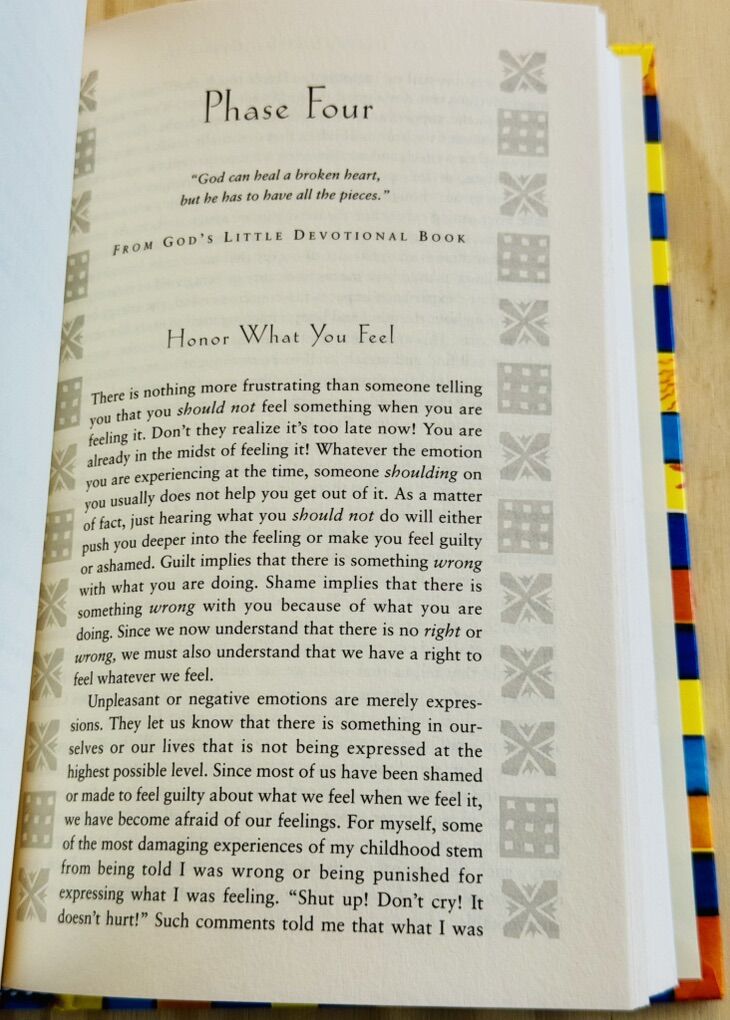 Phase Four
“God can heal a broken heart,
but he has to have all the pieces.”
From God’s Little Devotional Book
Honor What You Feel
There is nothing more frustrating than someone telling
you that you should not feel something when you are
feeling it. Don’t they realize it’s too late now! You are
already in the midst of feeling it! Whatever the emotion
you are experiencing at the time, someone shoulding on
you usually does not help you get out of it. As a matter
of fact, just hearing what you should not do will either
push you deeper into the feeling or make you feel guilty
or ashamed. Guilt implies that there is something wrong
with what you are doing. Shame implies that there is
something wrong with you because of what you are
doing. Since we now understand that there is no right or
wrong, we must also understand that we have a right to
feel whatever we feel.
Unpleasant or negative emotions are merely expres-
sions. They let us know that there is something in our-
selves or our lives that is not being expressed at the
highest possible level. Since most of us have been shamed
or made to feel guilty about what we feel when we feel it,
we have become afraid of our feelings. For myself, some
of the most damaging experiences of my childhood stem
from being told I was wrong or being punished for
expressing what I was feeling. “Shut up! Don’t cry! It
doesn’t hurt!” Such comments told me that what I was